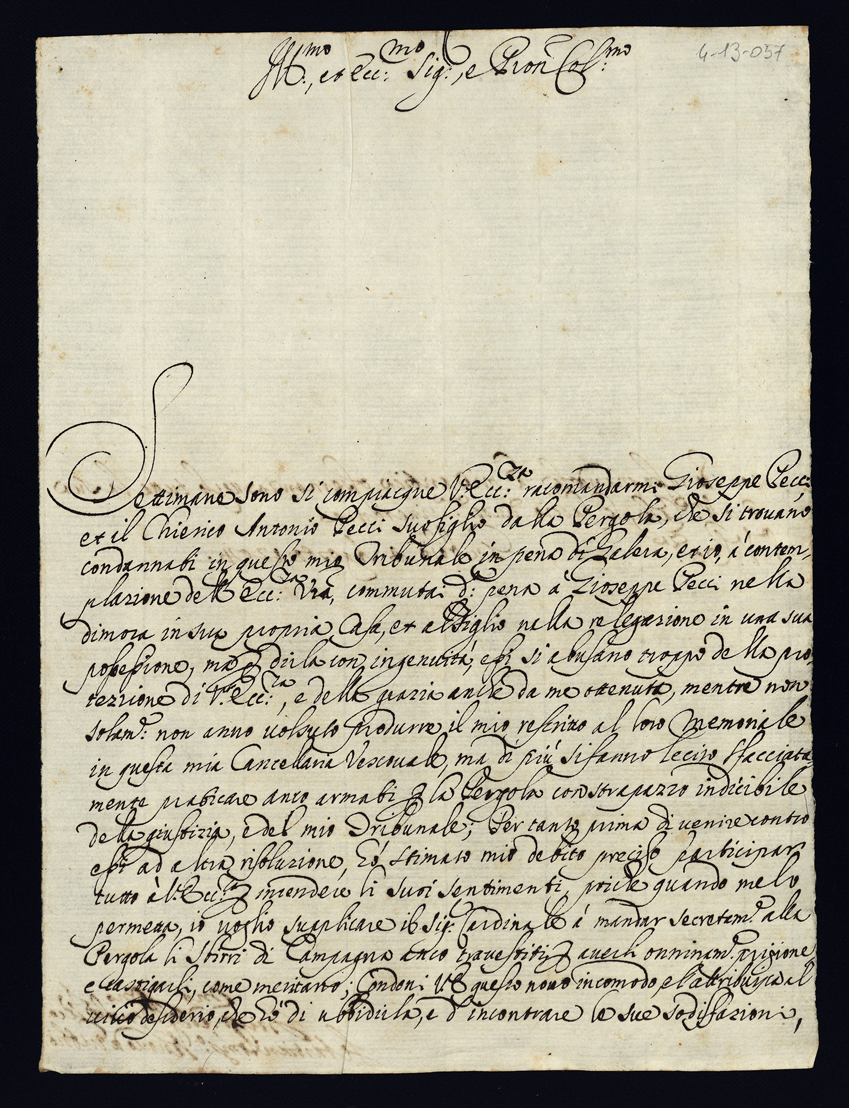 4-13-057
Ill.mo, et Ecc.mo Sig.r, e Pron Col.mo
Settimane sono si compiacque V. Ecc.za racomandarmi Gioseppe Pecci,
et il Chierico Antonio Pecci suo figlio dalla Pergola, che si trovano
condannati in questo mio Tribunale in pena di Galera, et io, à contem,
plazione dell'Ecc.za Vra, commutai d.a pena a Gioseppe Pecci nella
dimora in sua propria Casa, et al figlio nella relegazione in una sua
possessione, ma p dirla con ingenuità, essi si abusano troppo della pro,
tezzione di V. Ecc.za, e della grazia anche da me ottenuta, mentre non
solam.te non anno voluto produrre il mio rescritto al loro Memoriale
in questa mia Cancellaria Vescovale, ma di più si fanno lecito sfacciata
mente praticare anco armati p la Pergola con strapazzo indicibile
della giustizia, e del mio Tribunale; Per tanto prima di venire contro
essi ad altra risoluzione, hò stimato mio debito preciso participar
tutto à V. Ecc.za p intendere li suoi sentimenti, poiche quando me lo
permetta, io voglio supplicare il Sig.r Cardinale à mandar secretam.te alla
Pergola li Sbirri di Campagna anco travestiti p averli onninam.te prigione,
e castigarli, come meritano; Condoni V.E. questo novo incomodo, e l'attribuisca al
desiderio, che hò di ubbidirla, e d'incontrare le sue sodisfazioni,